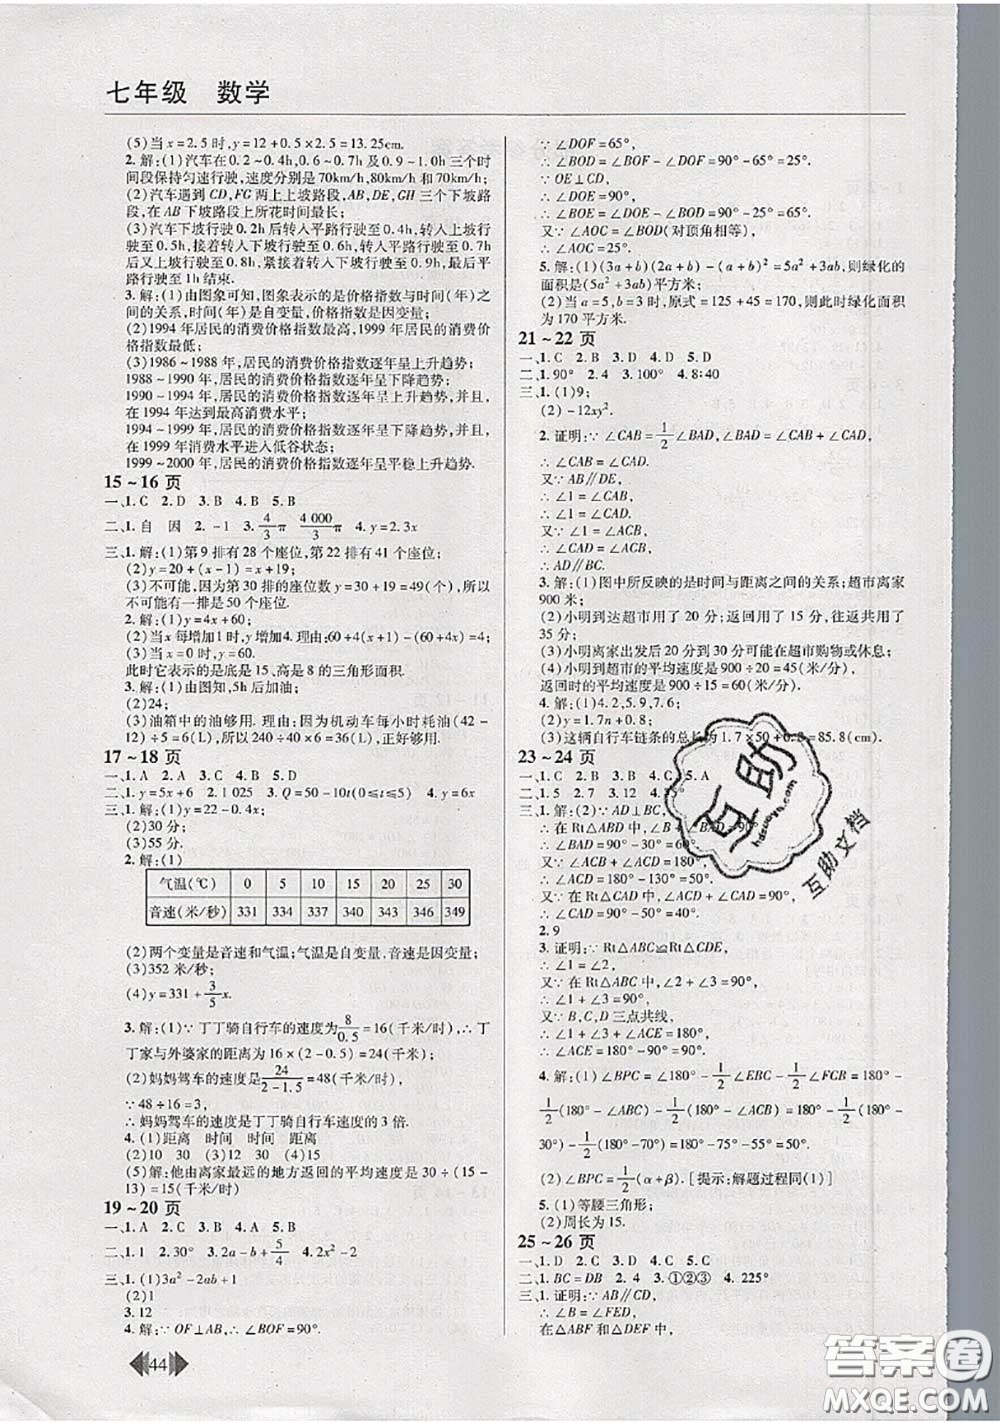 七年级 数学
(5)当x=2.5时,y=12+0.5×2.5=13.25cm.
2.解:(1)汽车在0.2~0.4h,0.6~0.7h及0.9~1.0h三个时
间段保持匀速行驶,速度分别是70km/h,80km/h和70km/h;
(2)汽车遇到CD,FG两上上坡路段,AB,DE,GH三个下坡路
段,在AB下坡路段上所花时间最长;
(3)汽车下坡行驶0.2h后转入平路行驶至0.4h,转入上坡行
驶至0.5h,接着转入下坡行驶至0.6h,转入平路行驶至0.7h
后又上坡行驶至0.8h,紧接着转入下坡行驶至0.9h,最后平
路行驶至1h结束.
3.解:(1)由图象可知,图象表示的是价格指数与时间(年)之
间的关系,时间(年)是自变量,价格指数是因变量;
(2)1994年居民的消费价格指数最高,1999年居民的消费价
格指数最低;
(3)1986~1988年,居民的消费价格指数逐年呈上升趋势;
1988~1990年,居民的消费价格指数逐年呈下降趋势;
1990~1994年,居民的消费价格指数逐年呈上升趋势,并且,
在1994年达到最高消费水平;
1994~1999年,居民的消费价格指数逐年呈下降趋势,并且,
在1999年消费水平进入低谷状态;
1999~2000年,居民的消费价格指数逐年呈平稳上升趋势.
15~16页
一、1.C 2.D 3.B 4.B 5.B
二、1.自 因 2.-1 3.4/3π 4 000/3π 4.y=2.3x
三、1.解:(1)第9排有28个座位,第22排有41个座位;
(2)y=20+(x-1)=x+19;
(3)不可能,因为第30排的座位数y=30+19=49(个),所以
不可能有一排是50个座位.
2.解:(1)y=4x+60;
(2)当x每增加1时,y增加4.理由:60+4(x+1)-(60+4x)=4;
(3)当x=0时,y=60.
此时它表示的是底是15,高是8的三角形面积.
3.解:(1)由图知,5h后加油;
(2)24;
(3)油箱中的油够用.理由:因为机动车每小时耗油(42-
12)÷5=6(L),所以240÷40×6=36(L),正好够用.
17~18页
一、1.A 2.A 3.B 4.C 5.A
二、1.y=5x+6 2.1 025 3.Q=50-10t(0≤t≤5) 4.y=6x
三、1.解:(1)y=22-0.4x;
(2)30分;
(3)55分.
2.解:(1)
气温(℃) 0 5 10 15 20 25 30
音速(米/秒) 331 334 337 340 343 346 349
(2)两个变量是音速和气温;气温是自变量,音速是因变量;
(3)352米/秒;
(4)y=331+3/5x.
3.解:(1)∵丁丁骑自行车的速度为8/0.5=16(千米/时),∴丁
丁家与外婆家的距离为16×(2-0.5)=24(千米);
(2)妈妈驾车的速度是24/(2-1.5)=48(千米/时),
∵48÷16=3,
∴妈妈驾车的速度是丁丁骑自行车速度的3倍.
4.(1)距离 时间 时间 距离
(2)10 30 (3)30 (4)15
(5)解:他由离家最远的地方返回的平均速度是30÷(15-
13)=15(千米/时)
19~20页
一、1.A 2.C 3.B 4.A 5.B
二、1.1 2.30° 3.2a-b+5/4 4.2x²-2
三、1.(1)3a²-2ab+1
(2)1
3.12
4.解:∵OF⊥AB,∴∠BOF=90°.
44
∵∠DOF=65°,
∴∠BOD=∠BOF-∠DOF=90°-65°=25°.
∵OE⊥CD,
∴∠DOE=90°,
∴∠BOE=∠DOE-∠BOD=90°-25°=65°.
又∵∠AOC=∠BOD(对顶角相等),
∴∠AOC=25°.
5.解:(1)(3a+b)(2a+b)-(a+b)²=5a²+3ab,则绿化的
面积是(5a²+3ab)平方米;
(2)当a=5,b=3时,原式=125+45=170,则此时绿化面积
为170平方米.
21~22页
一、1.C 2.B 3.D 4.D 5.D
二、1.90° 2.4 3.100° 4.8:40
三、1.(1)9;
(2)-12xy².
2.证明:∵∠CAB=1/2∠BAD,∠BAD=∠CAB+∠CAD,
∴∠CAB=∠CAD=1/2∠BAD.
又∵AB∥DE,
∴∠1=∠CAB,
∴∠1=∠CAD.
又∵∠1=∠ACB,
∴∠CAD=∠ACB,
∴AD∥BC.
3.解:(1)图中所反映的是时间与距离之间的关系;超市离家
900米;
(2)小明到达超市用了20分;返回用了15分,往返共用了
35分;
(3)小明离家出发后20分到30分可能在超市购物或休息;
(4)小明到超市的平均速度是900÷20=45(米/分),
返回时的平均速度是900÷15=60(米/分).
4.解:(1)4.2,5.9,7.6;
(2)y=1.7n+0.8;
(3)这辆自行车链条的总长为1.7×50+0.8=85.8(cm).
23~24页
一、1.C 2.B 3.C 4.A 5.D
二、1.5 2.7 3.12 4.
三、1.证明:(2)∵AD⊥BC,
∴在Rt△ABD中,∠B+∠BAD=90°,
∴∠BAD=90°-30°=60°.
又∵∠ACB+∠ACD=180°,
∴∠ACD=180°-
又∵在Rt△ACD中,∠CAD=90°-
2.9
3.证明:∵Rt△ABC≌Rt△CDE,
∴∠1=∠2.
又∵在Rt△ABC中,∠2+∠3=90°,
∴∠1+∠3=90°.
又∵B,C,D三点共线,
∴∠1+∠3+∠ACE=180°,
∴∠ACE=180°-90°=90°.
4.解:(1)∠BPC=∠180°-1/2∠EBC-1/2∠FCB=180°
-1/2(180°-∠ABC)-1/2(180°-∠ACB)=180°-1/2(180°-
30°)-1/2(180°-70°)=180°-75°-55°=50°;
(2)∠BPC=1/2(α+β).[提示:解题过程同(1)]
5.(1)等腰三角形;
(2)周长为15.
25~26页
一、1.D 2.C 3.D 4.C 5.C
二、1.BC=DB 2.4 3.①②③ 4.225°
三、1.证明:(1)∵AB∥DE,
∴∠B=∠FED,
在△ABF和△DEF中,
互助
互助文档
答案圈
MXQE.COM